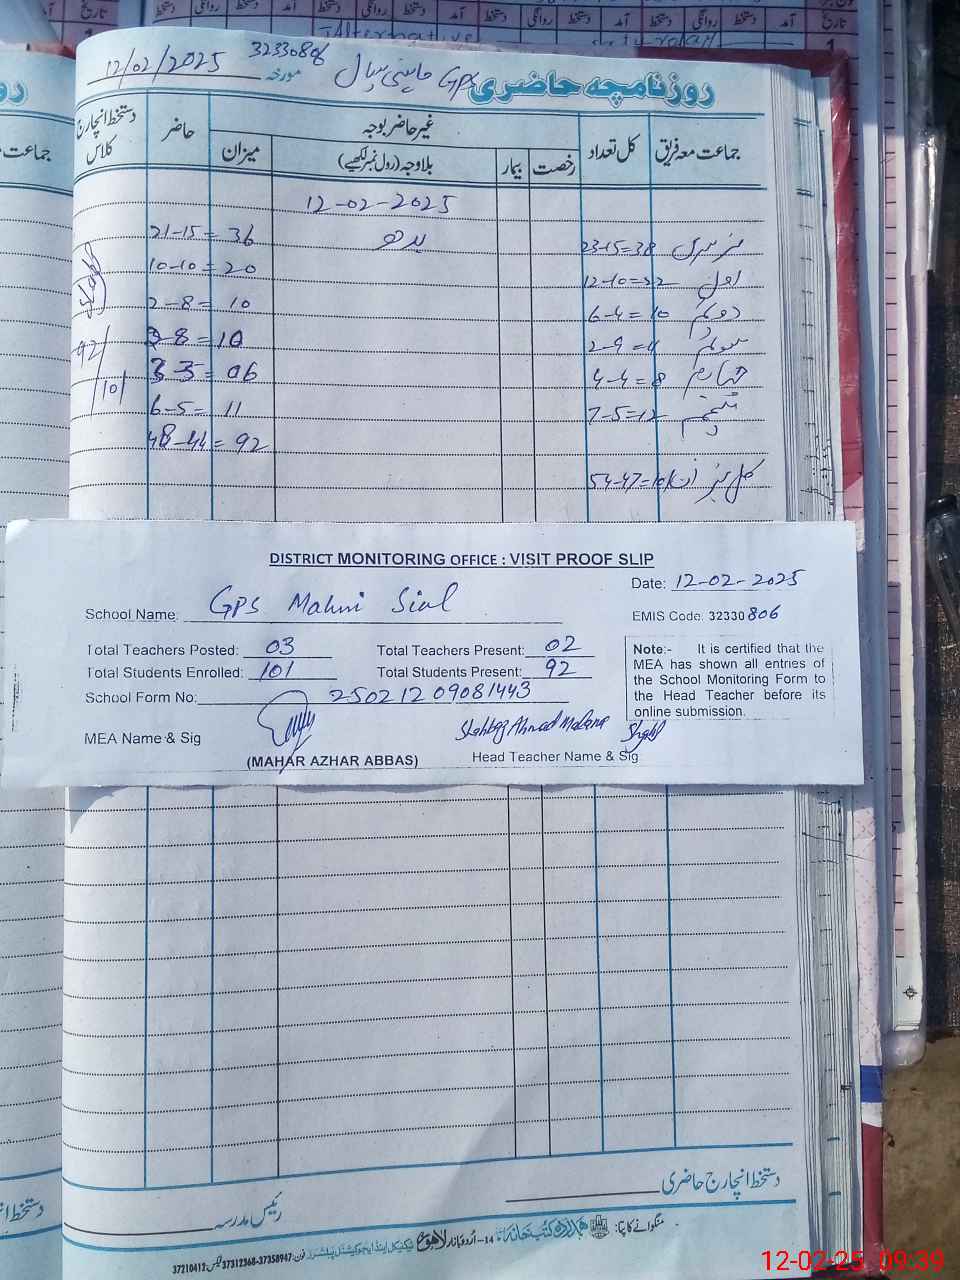 روزنامچہ حاضری GPS ماہنی سیال 32330806 مورخہ 12/02/2025
جماعت معہ فریق کل تعداد غیر حاضر بوجہ حاضر دستخط انچارج کلاس
رخصت بیمار بلاوجہ (رول نمبر لکھیے) میزان
12-02-2025
نرسری 23-15=38 بدھ 21-15=36
اول 12-10=22 10-10=20
دوئم 6-4=10 2-8=10
سوئم 2-9= 3-8=10
چہارم 4-4=8 3-3=06
پنجم 7-5=12 6-5=11
48-44=92
92/101
کل نمبر 54-47=101
DISTRICT MONITORING OFFICE : VISIT PROOF SLIP
Date: 12-02-2025
School Name: GPS Mahni Sial
EMIS Code: 32330806
Total Teachers Posted: 03 Total Teachers Present: 02
Total Students Enrolled: 101 Total Students Present: 92
School Form No: 25021209081443
Note:- It is certified that the
MEA has shown all entries of
the School Monitoring Form to
the Head Teacher before its
online submission.
MEA Name & Sig
Shahbaz Ahmad
(MAHAR AZHAR ABBAS) Head Teacher Name & Sig
دستخط انچارج حاضری
رئیس مدرسہ
منگوانے کا پتہ: ہمدرد کتب خانہ 14-اردو بازار لاہور ٹیکنیکل اینڈ ایجوکیشنل پبلشرز فون: 37358947-37312368 فیکس: 37210412
12-02-25 09:39